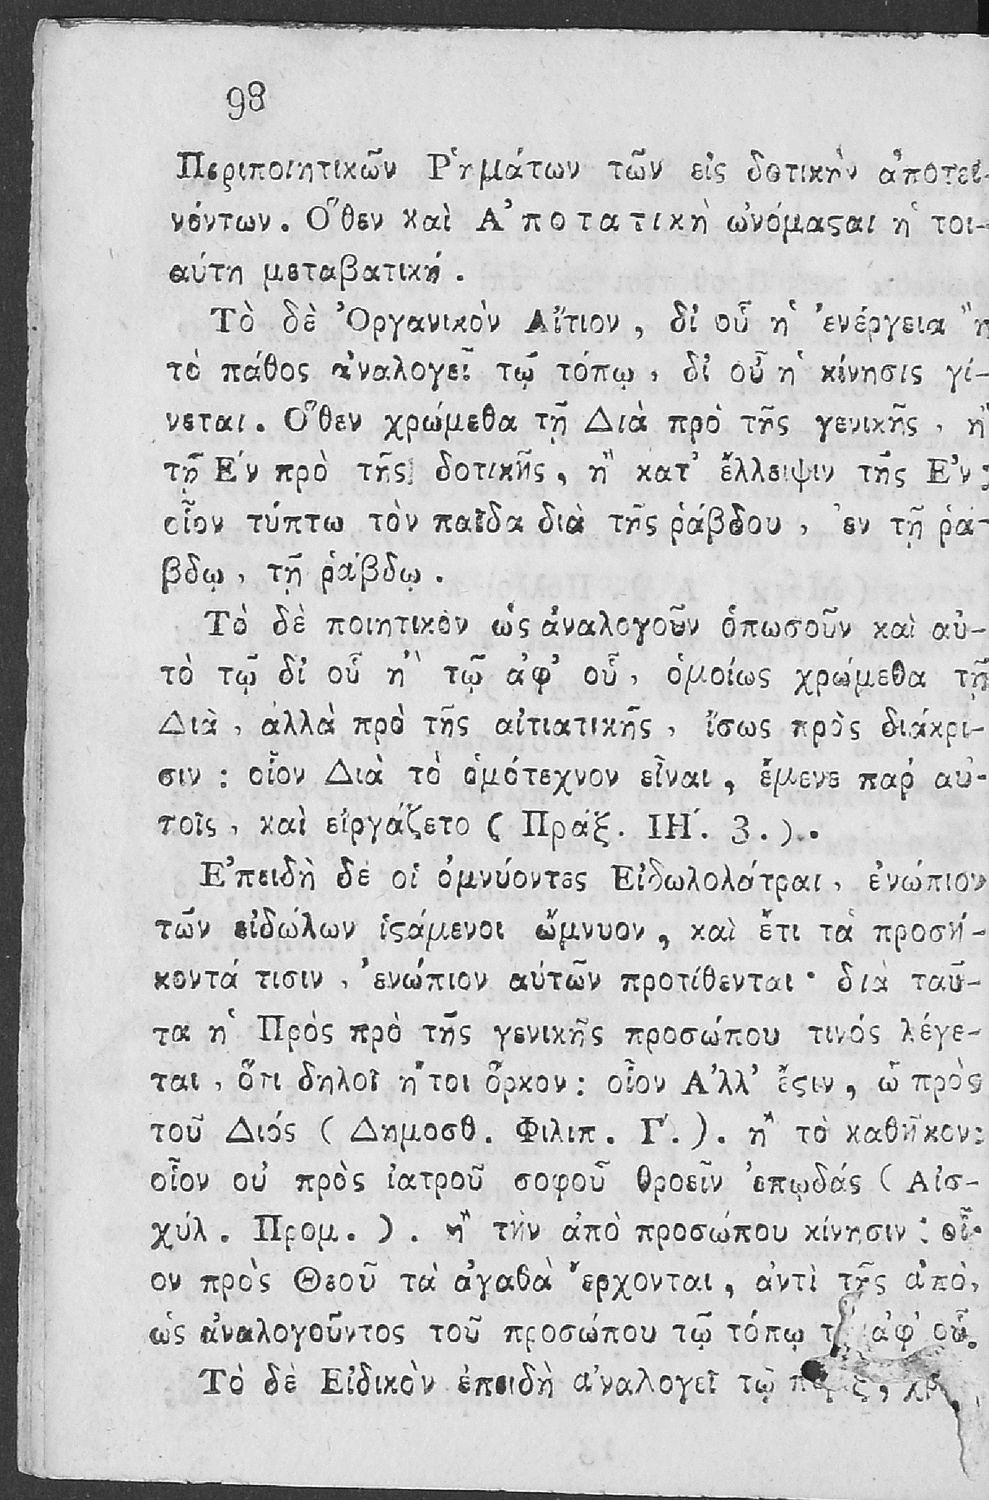 98
Περιποιητικῶν Ῥημάτων τῶν εἰς δοτικὴν ἀποτει-
νόντων. Ὅθεν καὶ Ἀποτατικὴ ὠνόμαϛαι ἡ τοι-
αύτη μεταβατική.
Τὸ δὲ Ὀργανικὸν Αἴτιον, δι' οὗ ἡ ἐνέργεια ἢ
τὸ πάθος ἀναλογεῖ τῷ τόπῳ, δι' οὗ ἡ κίνησις γί-
νεται. Ὅθεν χρώμεθα τῇ Διὰ πρὸ τῆς γενικῆς, ἢ
τῇ Ἐν πρὸ τῆς δοτικῆς, ἢ κατ' ἔλλειψιν τῆς Ἐν:
οἷον τύπτω τὸν παῖδα διὰ τῆς ῥάβδου, ἐν τῇ ῥά-
βδῳ, τῇ ῥάβδῳ.
Τὸ δὲ ποιητικὸν ὡς ἀναλογοῦν ὁπωσοῦν καὶ αὐ-
τὸ τῷ δι' οὗ ἢ τῷ ἀφ' οὗ, ὁμοίως χρώμεθα τῇ
Διὰ, ἀλλὰ πρὸ τῆς αἰτιατικῆς, ἴσως πρὸς διάκρι-
σιν: οἷον Διὰ τὸ ὁμότεχνον εἶναι, ἔμενε παρ' αὐ-
τοῖς, καὶ εἰργάζετο (Πράξ. ΙΗ΄. 3.).
Ἐπειδὴ δὲ οἱ ὀμνύοντες Εἰδωλολάτραι, ἐνώπιον
τῶν εἰδώλων ἱϛάμενοι ὤμνυον, καὶ ἔτι τὰ προσή-
κοντά τισιν, ἐνώπιον αὐτῶν προτίθενται· διὰ ταῦ-
τα ἡ Πρὸς πρὸ τῆς γενικῆς προσώπου τινός λέγε-
ται, ὅτι δηλοῖ ἤτοι ὅρκον: οἷον Ἀλλ' ἔϛιν, ὦ πρὸς
τοῦ Διός (Δημοσθ. Φιλιπ. Γ΄.). ἢ τὸ καθῆκον:
οἷον οὐ πρὸς ἰατροῦ σοφοῦ θροεῖν ἐπῳδάς (Αἰσ-
χύλ. Προμ.). ἢ τὴν ἀπὸ προσώπου κίνησιν: οἷ-
ον πρὸς Θεοῦ τὰ ἀγαθὰ ἔρχονται, ἀντὶ τῆς ἀπὸ,
ὡς ἀναλογοῦντος τοῦ προσώπου τῷ τόπῳ ἀφ' οὗ.
Τὸ δὲ Εἰδικὸν ἐπειδὴ ἀναλογεῖ τῷ